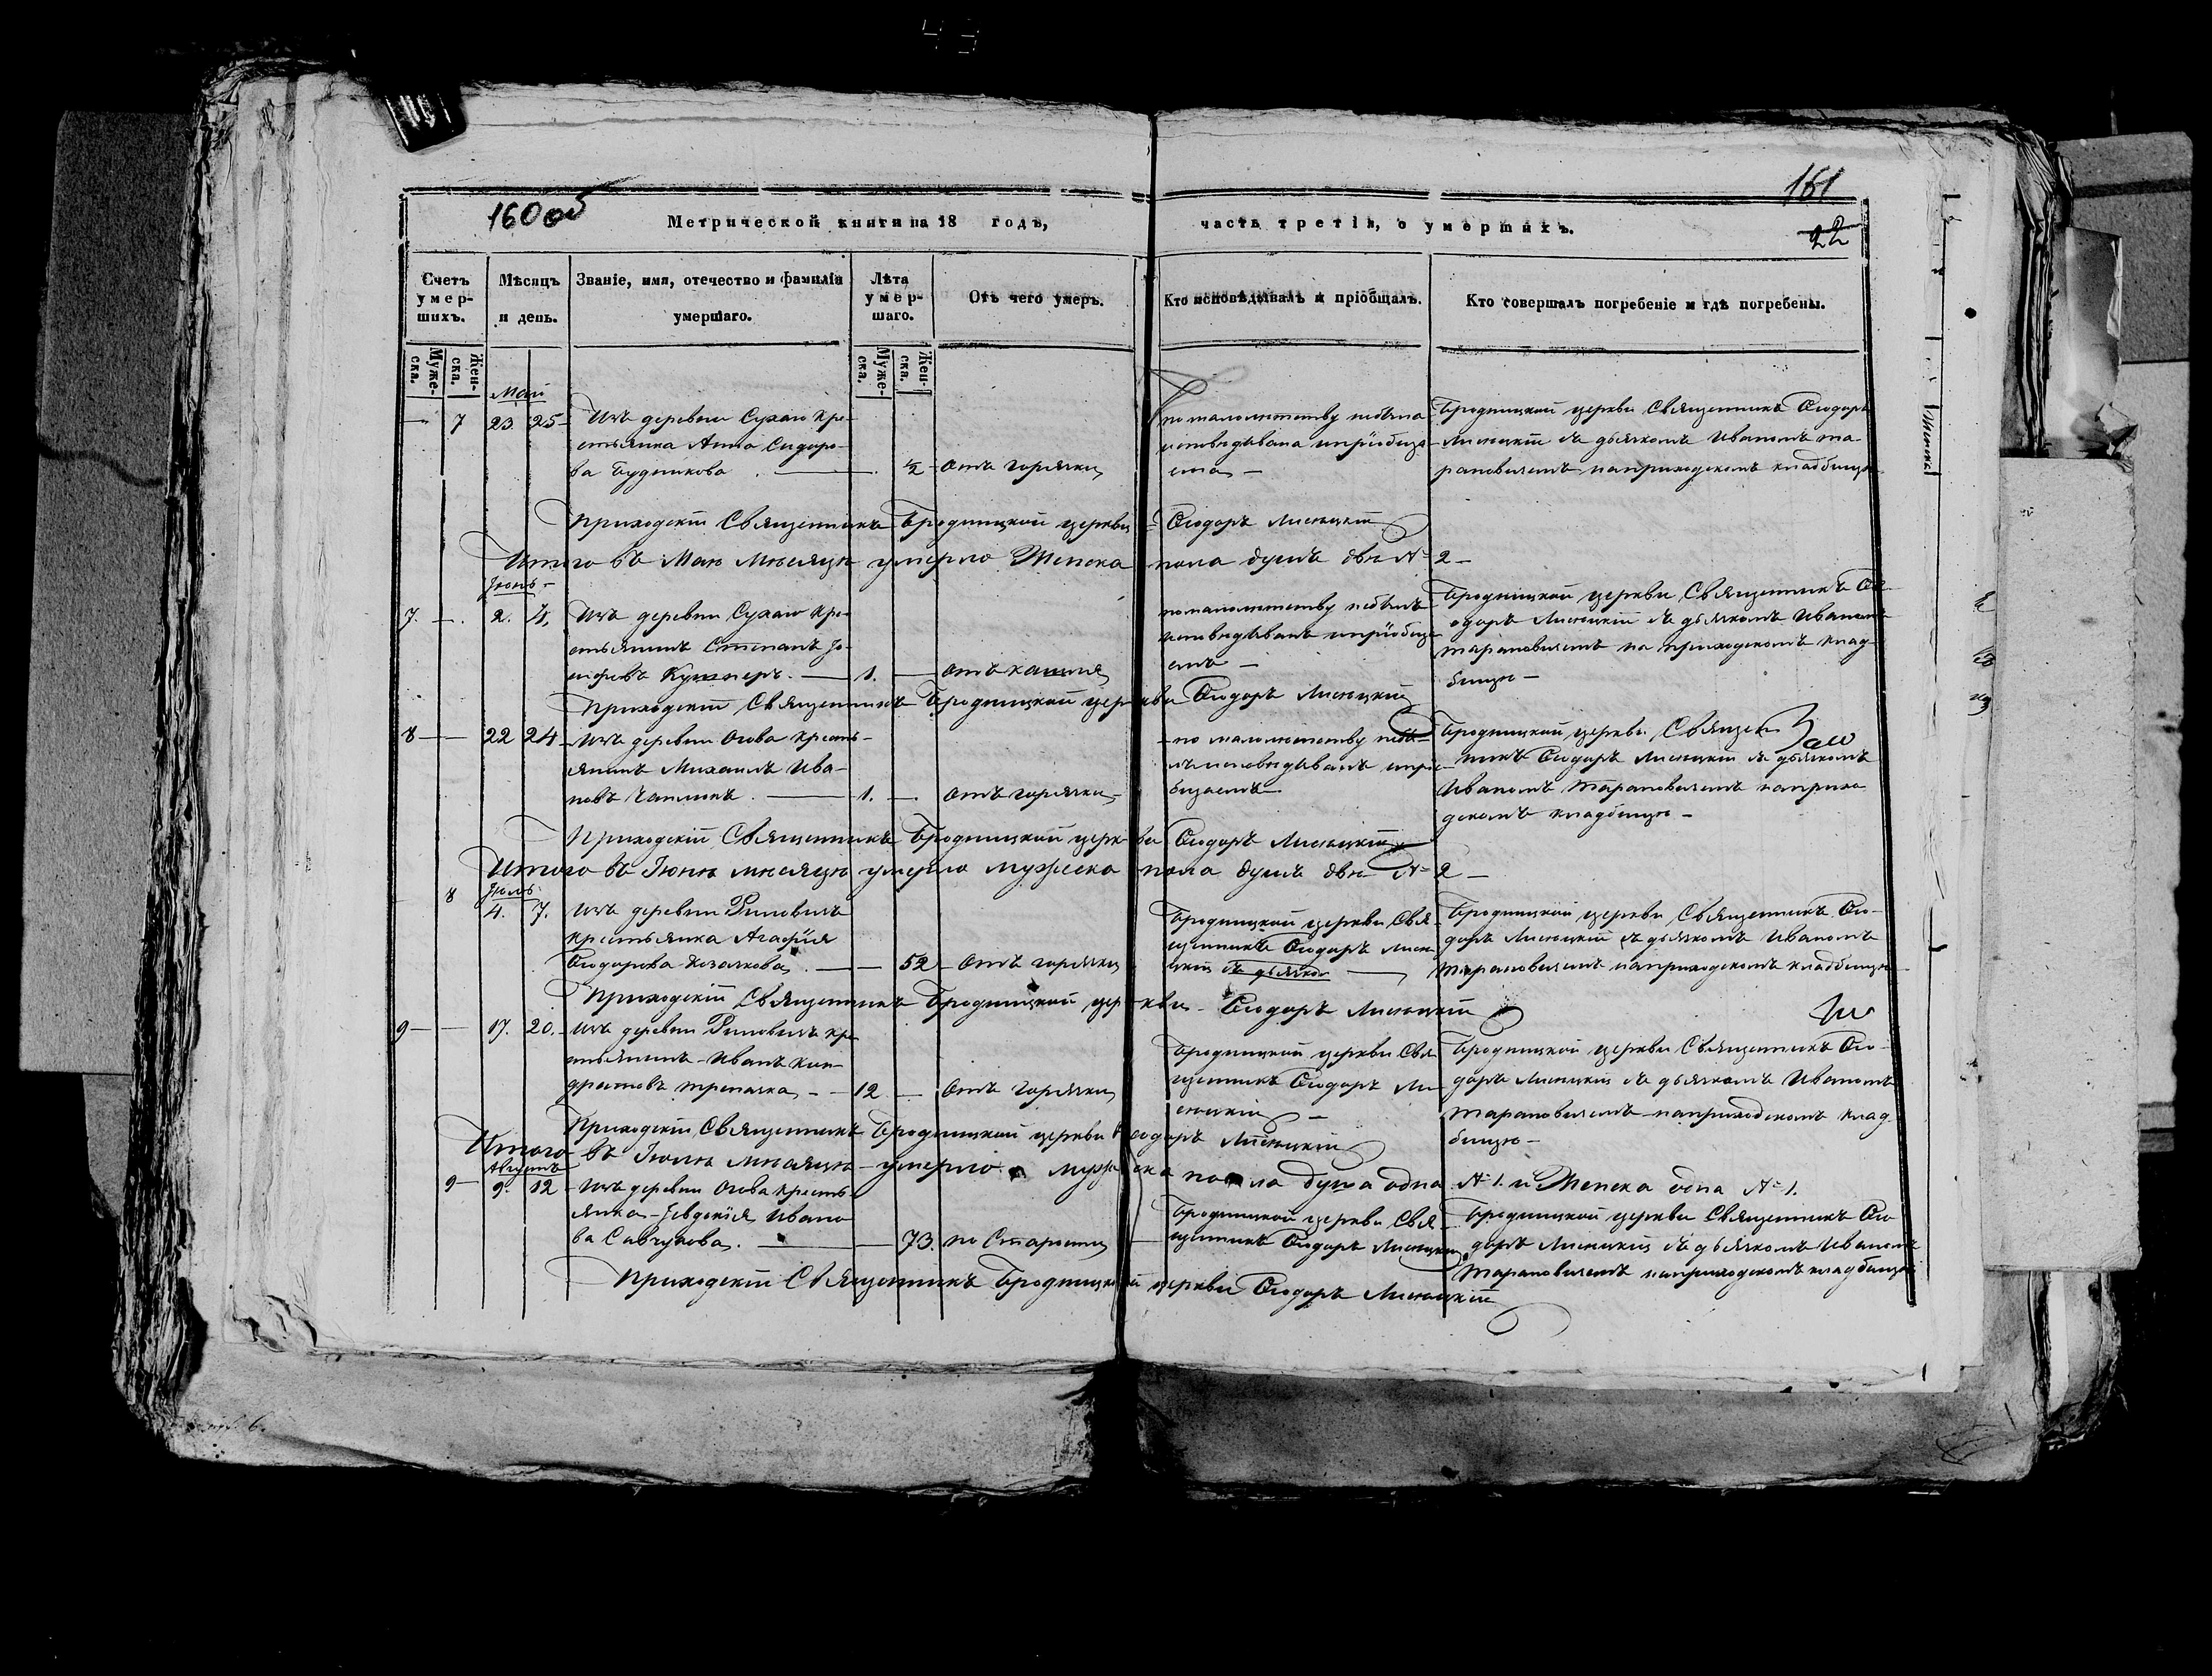 160 об
161
22
Метрической книги на 18 годъ,
часть третія, о умершихъ.
Счетъ умер-шихъ.
Мѣсяцъ и день.
Званіе, имя, отечество и фамилія умершаго.
Лѣта умер-шаго.
Отъ чего умеръ.
Кто исповѣдывалъ и пріобщалъ.
Кто совершалъ погребеніе и гдѣ погребены.
Муже-ска.
Жен-ска.
Муже-ска.
Жен-ска.
Май
7 23 25 Изъ деревни Сухаю кре-
стьянка Анна Сидоро-
ва Будникова ½ отъ горячки
по малолетству небыла
исповѣдывана и пріобща
ема
Бродницкой церкви Священникъ Ѳеодоръ
Лисецкій съ дьячкомъ Иваномъ та-
рановичемъ на приходскомъ кладбище
Приходскій Священникъ Бродницкой церкви Ѳеодоръ Лисецкій
Итого въ Маѣ мѣсяцѣ умерло Женска пола душъ двѣ № 2
Іюнь
7. 2. 4. Изъ деревни Сухаю кре-
стьянинъ Степанъ Іо-
сифовъ Кушнеръ 1. отъ кашля
по малолетству небылъ
исповѣдыванъ и пріобща
емъ
Бродницкой церкви Священникъ Ѳе-
одоръ Лисецкій съ дьячкомъ Иваномъ
Тарановичемъ на приходскомъ клад-
бищѣ
Приходскій Священникъ Бродницкой церкви Ѳеодоръ Лисецкій
8 22 24 Изъ деревни Огова кресть-
янинъ Михаилъ Ива-
новъ Чаплинъ 1. отъ горячки
по малолетству небы-
лъ исповѣдыванъ и прио-
бщаемъ
Бродницкой церкви Священ-
никъ Ѳеодоръ Лисецкій съ дьячкомъ
Иваномъ Тарановичемъ на прихо
дскомъ кладбищѣ
Приходскій Священникъ Бродницкой церкви Ѳеодоръ Лисецкій
Итого въ Іюнѣ мѣсяцѣ умерло мужеска пола душъ двѣ № 2
Іюль
8 4. 7. Изъ деревни
крестьянка Агафія
Ѳеодорова Козачкова 52 отъ горячки
Бродницкой церкви Свя-
щенникъ Ѳеодоръ Лисе-
цкій съ дьячко
Бродницкой церкви Священникъ Ѳео-
доръ Лисецкій съ дьячкомъ Иваномъ
Тарановичемъ на приходскомъ кладбище
Приходскій Священникъ Бродницкой церкви Ѳеодоръ Лисецкій
9 17. 20. Изъ деревни кре-
стьянинъ Иванъ Кон-
дратовъ 12 отъ горячки
Бродницкой церкви Свя-
щенникъ Ѳеодоръ Ли-
сецкій
Бродницкой церкви Священникъ Ѳео-
доръ Лисецкій съ дьячкомъ Иваномъ
Тарановичемъ на приходскомъ клад-
бищѣ
Приходскій Священникъ Бродницкой церкви Ѳеодоръ Лисецкій
Итого въ Іюлѣ мѣсяцѣ умерло мужеска пола душа одна № 1. и Женска одна № 1.
Августъ
9 9. 12 Изъ деревни Огова кресть-
янка Евдокія Ивано-
ва Савчукова 73. по старости
Бродницкой церкви Свя-
щенникъ Ѳеодоръ Лисецкій
Бродницкой церкви Священникъ Ѳео-
доръ Лисецкій съ дьячкомъ Иваномъ
Тарановичемъ на приходскомъ кладбищѣ
Приходскій Священникъ Бродницкой церкви Ѳеодоръ Лисецкій